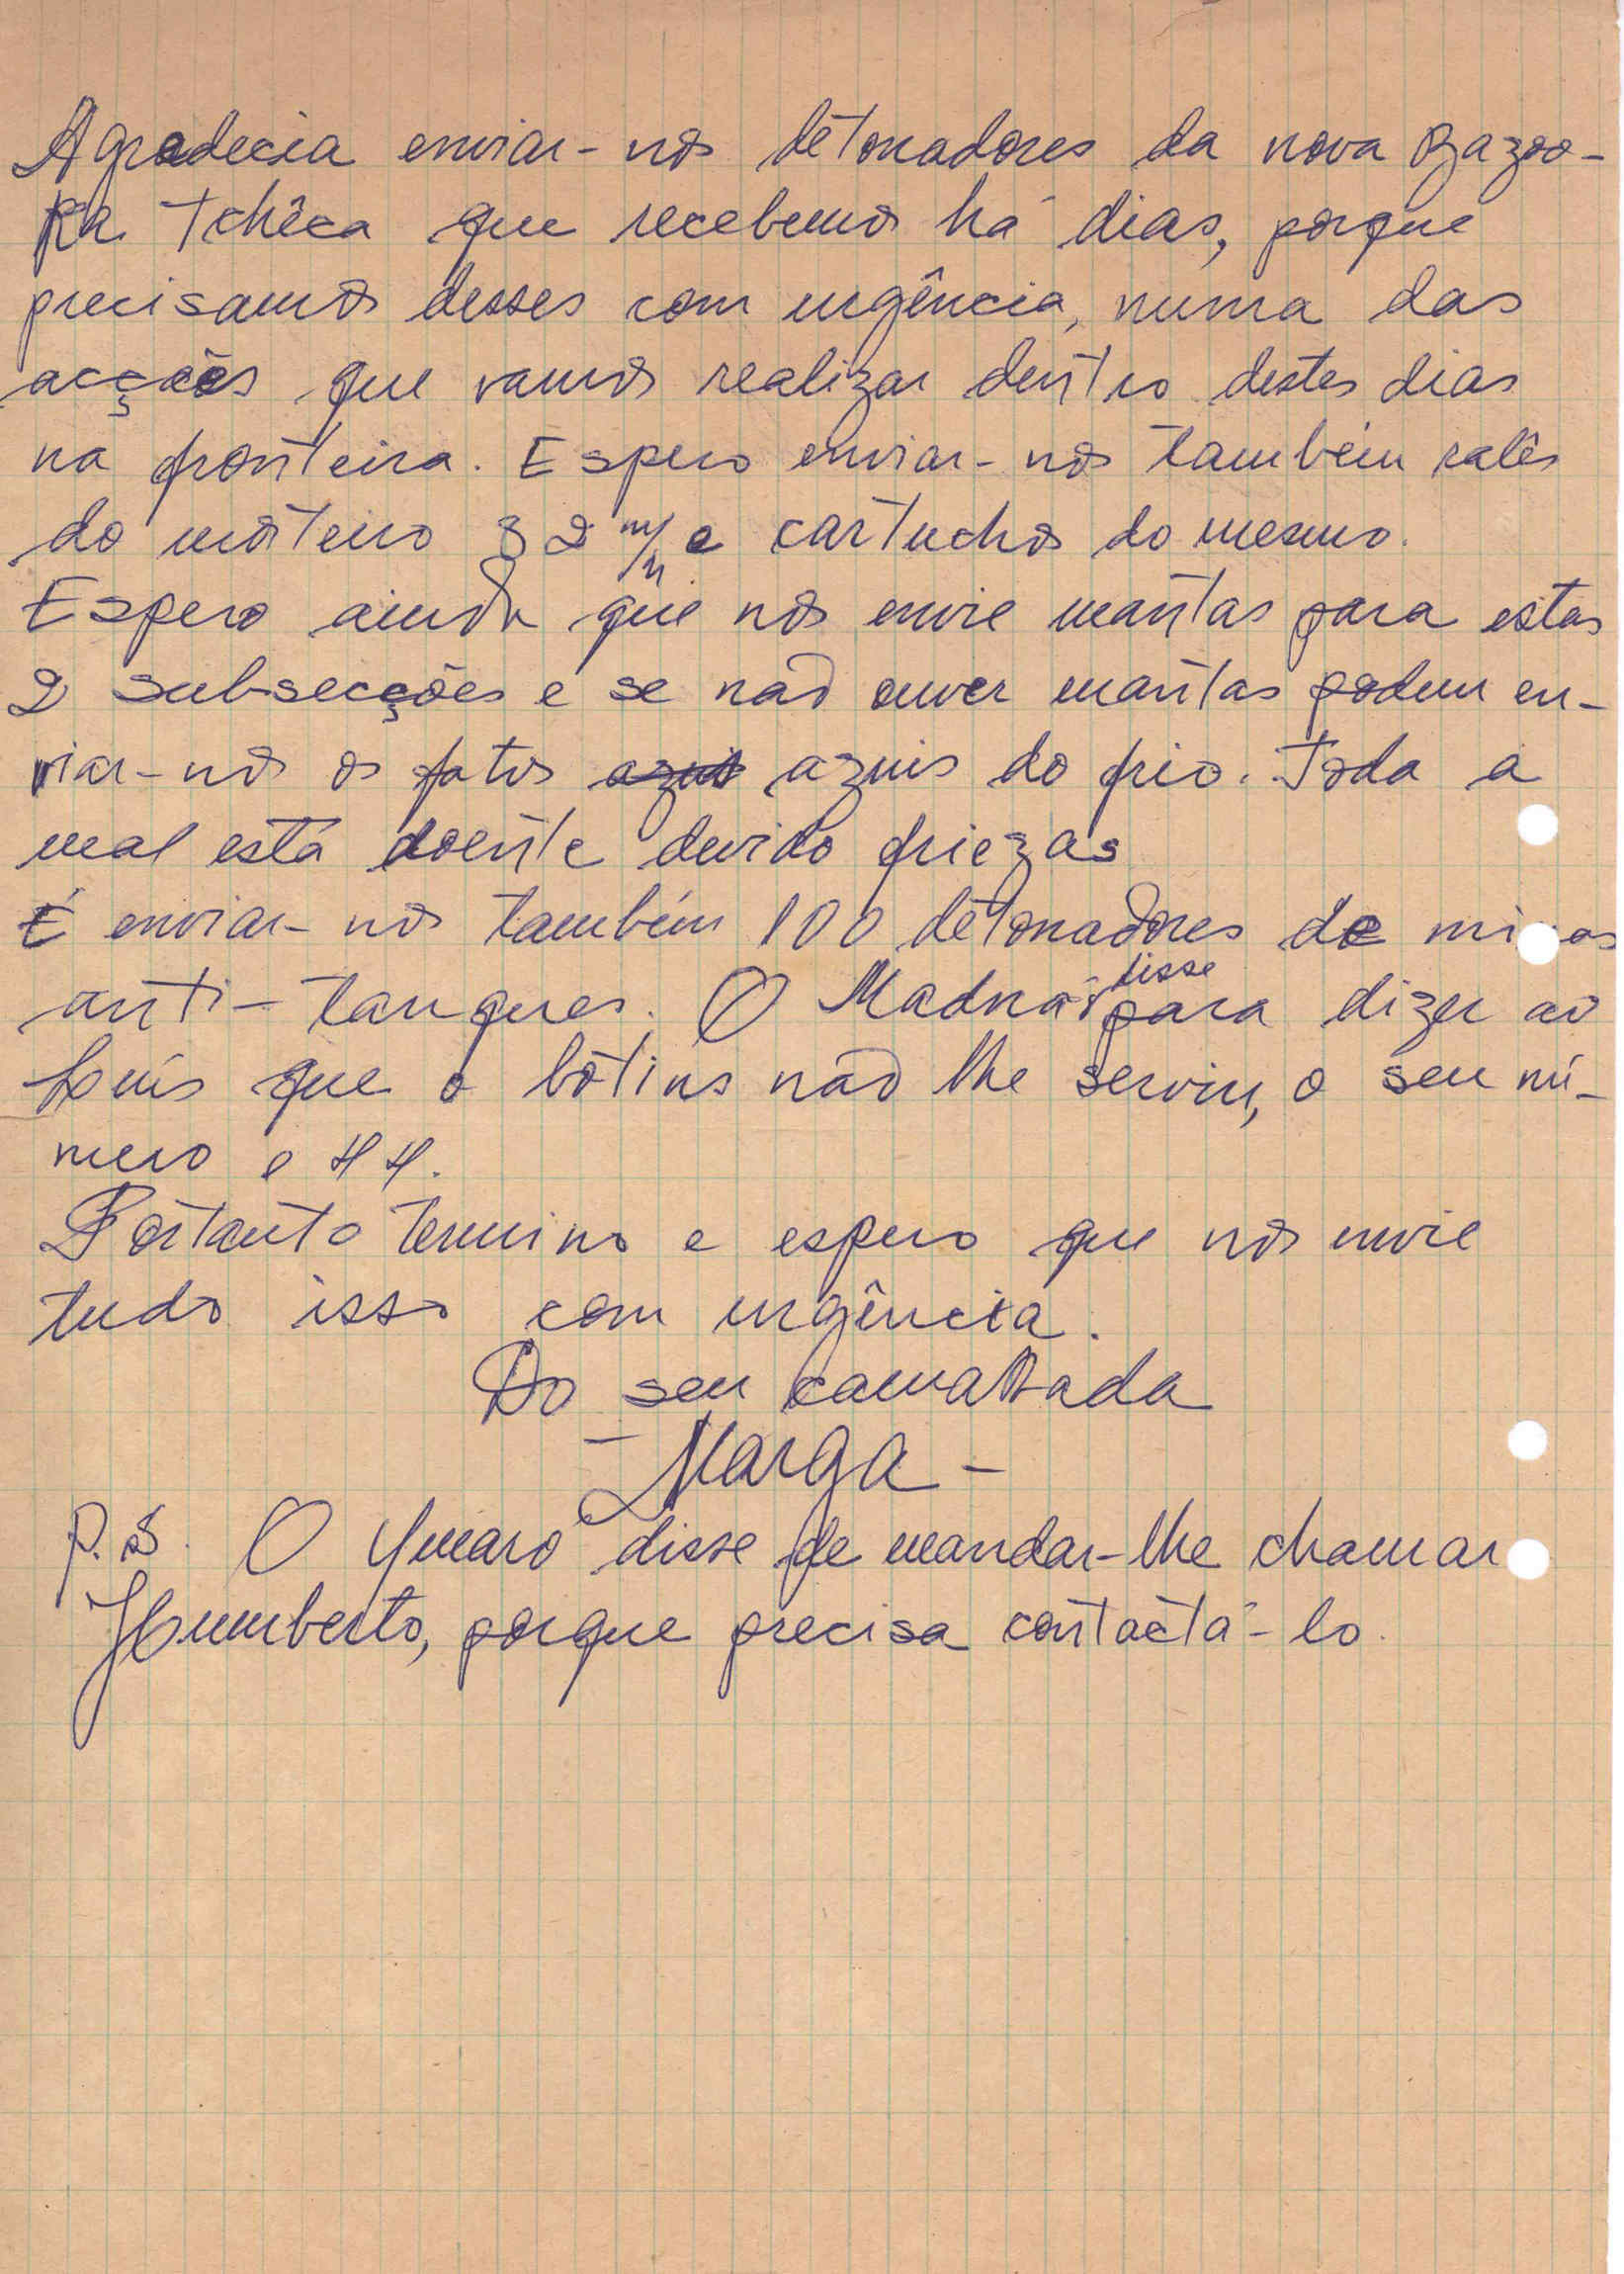 Agradecia enviar-nos detonadores da nova Bazoo-
ka Tchêca que recebemos há dias, porque
precisamos desses com urgência, numa das
acções que vamos realizar dentro destes dias
na fronteira. Espero enviar-nos também
do morteiro 82 m/m e cartuchos do mesmo.
Espero ainda que nos envie mantas para estas
2 sub-secções e se não ouver mantas podem en-
viar-nos os fatos azuis do frio. Toda a
mal está doente devido friezas
É enviar-nos também 100 detonadores de minas
anti-tanques. O disse para dizer ao
Luís que o botins não lhe serviu, o seu nú-
mero e 44.
Portanto termino e espero que nos envie
tudo isso com urgência.
Do seu camarada
- Marga -
P.S. O disse de mandar-lhe chamar
Humberto, porque precisa contactá-lo.